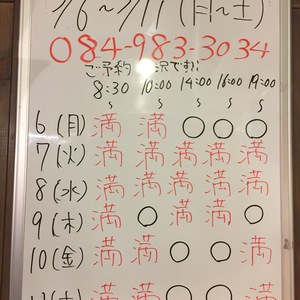 2/6~2/11(月~土)
084-983-3034
ご予約 状況です!!
8:30 10:00 14:00 16:00 19:00
~ ~ ~ ~ ~
6(月) 満 満 ○ ○ ○
7(火) 満 満 満 満 満
8(水) 満 満 満 満 ○
9(木) 満 ○ 満 満 ○
10(金) 満 満 ○ ○ 満
11(土) 満 満 ○ ○ 満